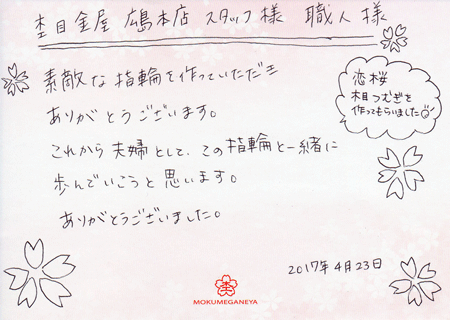 杢目金屋 広島本店 スタッフ様 職人様
素敵な指輪を作っていただき
ありがとうございます。
これから夫婦として、この指輪と一緒に
歩んでいこうと思います。
ありがとうございました。
恋桜
相つむぎを
作ってもらいました
2017年4月23日
杢
MOKUMEGANEYA